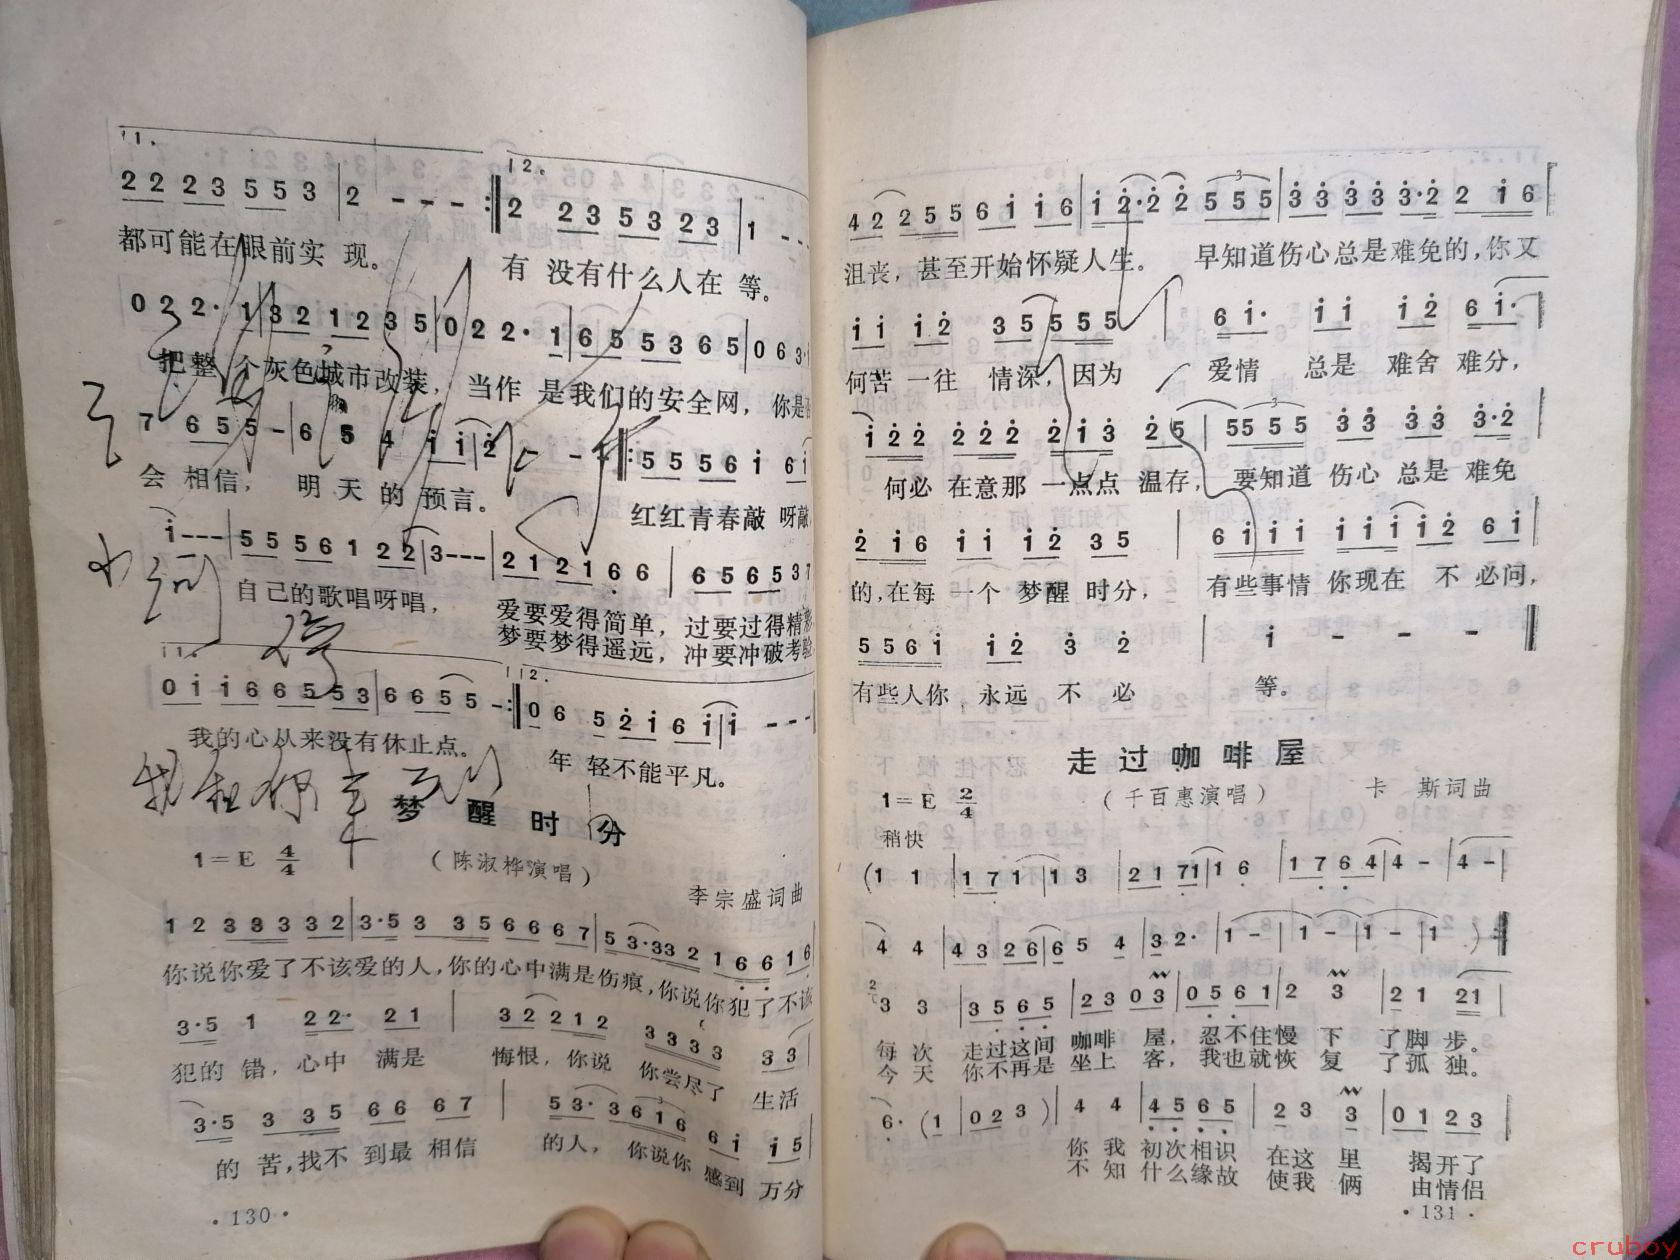 11.
2 2 2 3 5 5 3 | 2 - - - :‖
12.
2 2 3 5 3 2 3 | 1 - -
都可能在眼前实 现。 有 没有什么人在 等。
0 2 2· 1 | 3 2 1·2 3 5 | 0 2 2· 1 | 6 5 5 3 6 5 | 0 6 3·
把整 个灰色城市改装, 当作 是我们的安全网, 你是
7 6 5 5 - | 6 5 4 i i | 2 - - - :‖: 5 5 5 6 i 6 i
会 相信, 明 天 的 预言。 红红青春敲 呀敲,
i - - - | 5 5 5 6 1 2 2 | 3 - - - | 2 1 2 1 6 6 | 6 5 6 5 3 7
自己的歌唱呀唱, 爱要爱得简单, 过要过得精彩
梦要梦得遥远, 冲要冲破考验
11.
0 i i 6 6 5 5 3 | 6 6 5 5 - :‖
12.
0 6 5 2 i 6 i | i - - -
我的心从来没有休止点。 年 轻不能平凡。
我在你
梦 醒 时 分
1=E 4/4 (陈淑桦演唱)
李宗盛词曲
1 2 3 3 3 3 2 | 3·5 3 3 5 6 6 6 7 | 5 3·3 3 2 1 6 6 1 6
你说你爱了不该爱的人,你的心中满是伤痕,你说你犯了不该
3·5 1 2 2· 2 1 | 3 2 2 1 2 3 3 3 3 3 3
犯的 错,心中 满是 悔恨,你说 你尝尽了 生活
3·5 3 3 5 6 6 6 7 | 5 3· 3 6 1 6 6 i i 5
的 苦,找不 到最 相信 的人, 你说你 感到 万分
·130·
4 2 2 5 5 6 i i 6 | i 2·2 2 5 5 5 | 3 3 3 3 3·2 2 i 6
沮丧, 甚至开始怀疑人生。 早知道伤心总是难免的,你又
i i i 2 3 5 5 5 5 | 6 i· i i i 2 6 i·
何苦 一往 情深,因为 爱情 总是 难舍 难分,
i 2 2 2 2 2 2 i 3 2 5 | 5 5 5 5 3 3 3 3 3·2
何必 在意那 一点点 温存, 要知道 伤心 总是 难免
2 i 6 i i i 2 3 5 | 6 i i i i i i 2 6 i
的,在每 一个 梦醒 时分, 有些事情 你现在 不 必问,
5 5 6 i i 2 3 2 | i - - - ‖
有些人你 永远 不 必 等。
走过咖啡屋
1=E 2/4 (千百惠演唱) 卡 斯词曲
稍快
(1 1 | 1 7 1 | 1 3 | 2 1 7 1 | 1 6 | 1 7 6 4 | 4 - | 4 - |
4 4 | 4 3 2 6 | 6 5 4 | 3 2· | 1 - | 1 - | 1 - | 1 ) ‖
3 3 | 3 5 6 5 | 2 3 0 3 | 0 5 6 1 | 2 3 | 2 1 2 1
每 次 走过这间 咖啡 屋, 忍不住慢 下 了脚 步。
今 天 你不再是 坐上 客, 我也就恢 复 了孤 独。
6· (1 | 0 2 3 ) | 4 4 | 4 5 6 5 | 2 3 3 | 0 1 2 3
你 我 初次相识 在这 里 揭开了
不 知 什么缘故 使我 俩 由情侣
·131·
cruboy